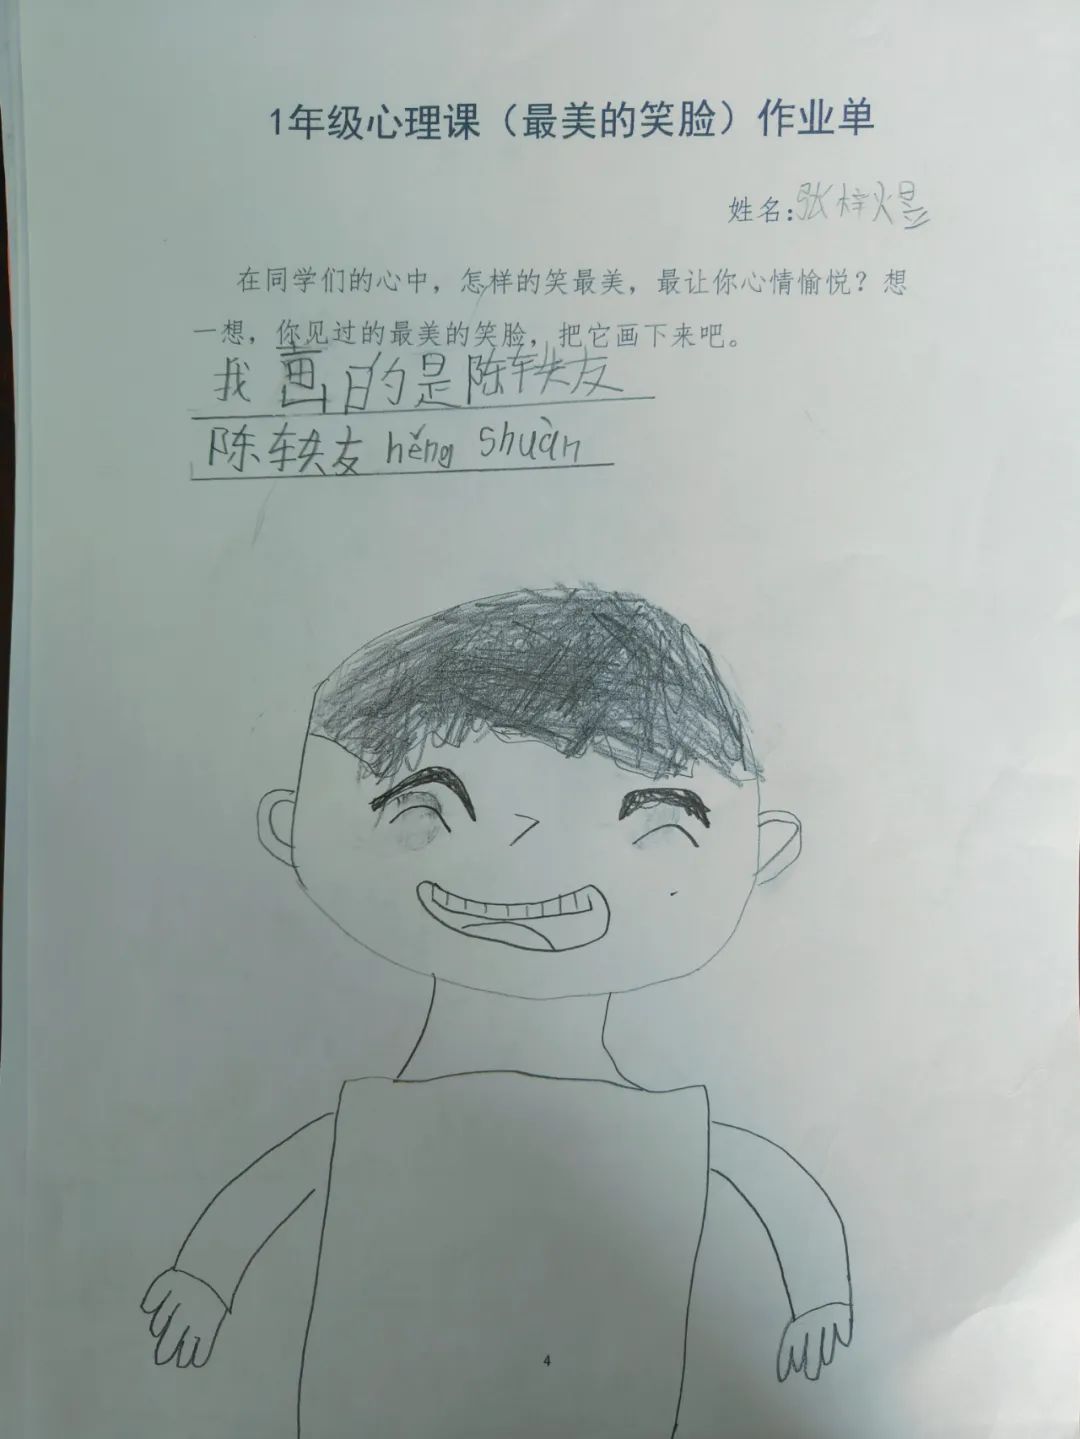 1年级心理课（最美的笑脸）作业单
姓名:张梓煜
在同学们的心中，怎样的笑最美，最让你心情愉悦？想
一想，你见过的最美的笑脸，把它画下来吧。
我画的是陈轶友
陈轶友 hěng shuàn
4